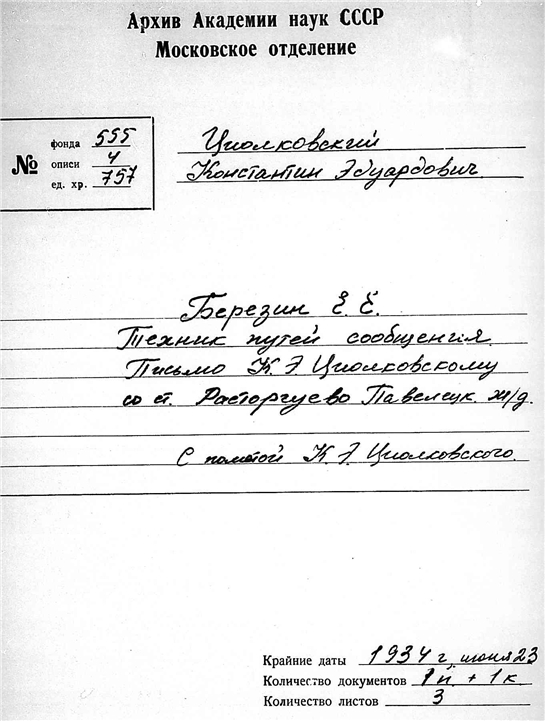 Архив Академии наук СССР
Московское отделение
№
фонда 555
описи 4
ед. хр. 757
Циолковский
Константин Эдуардович
Березин Е. Е.
Техник путей сообщения.
Письмо К.Э. Циолковскому
со ст. Расторгуево Павелецк. ж/д.
С пометой К.Э. Циолковского.
Крайние даты 1934 г. июня 23
Количество документов 1 п. + 1 к.
Количество листов 3